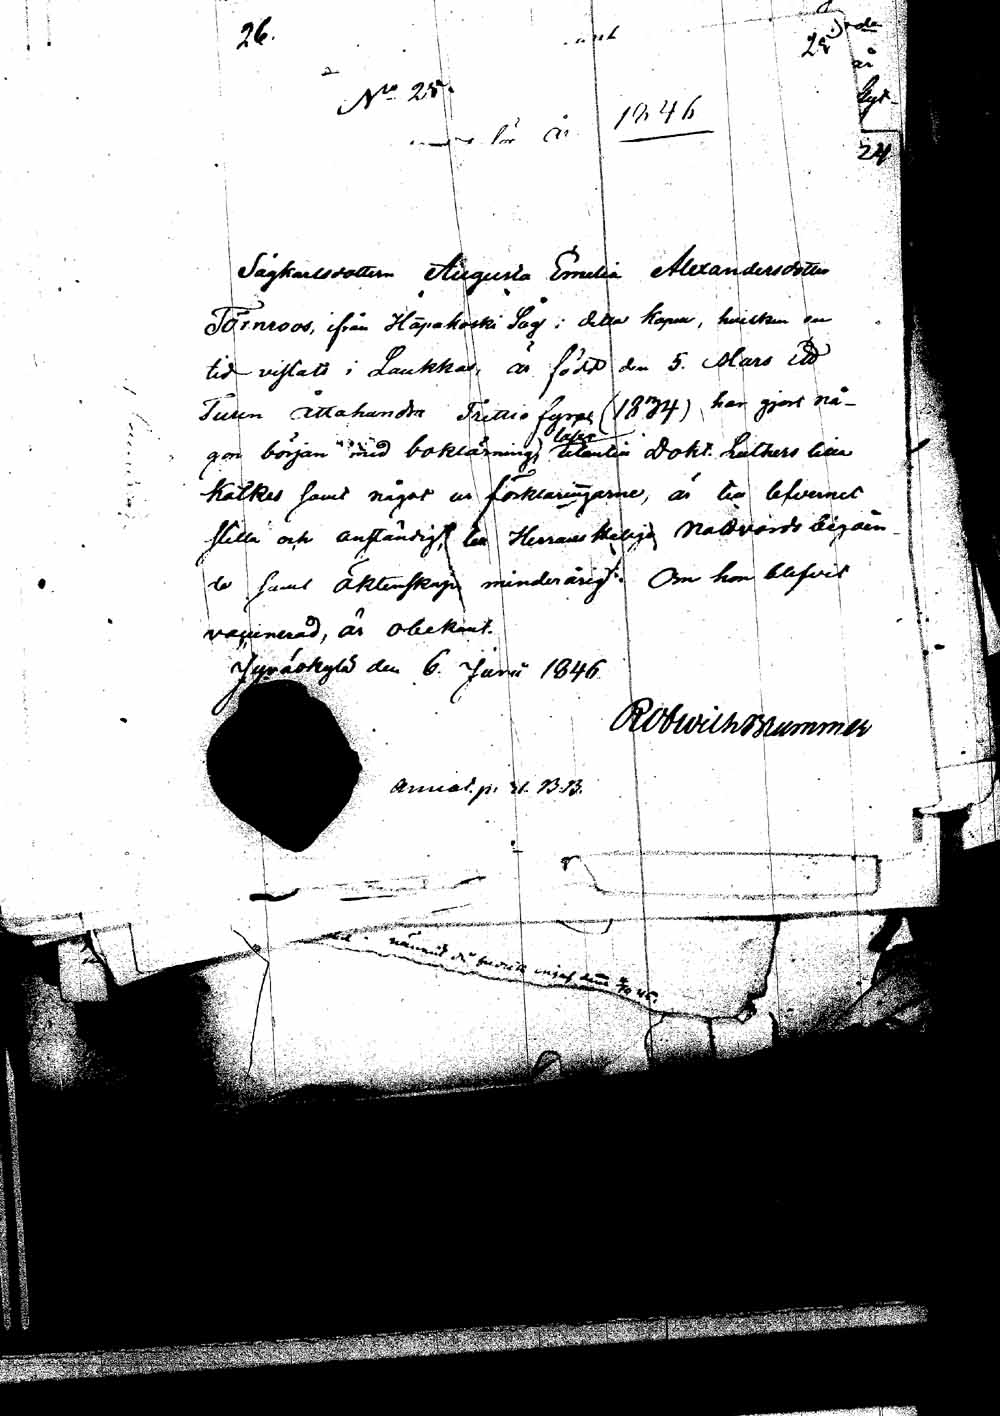 26.
28
No 25.
för år 1846
24
Sågkarlsdottern Augusta Emelia Alexandersdotter
Törnroos, ifrån Haapakoski Såg i detta Kapell, hvilken en
tid vistats i Laukkas, är född den 5. Mars Ett
Tusen Åttahundra Trettio fyra (1834), har gjort nå-
gon början med boklärning, läser utantill Dokt. Luthers lilla
Katkes samt något ur förklaringarne, är till lefvernet
stilla och anständig, till Herrans Heliga Nattvards begåen-
de samt Äktenskap minderårig. Om hon blifvit
vaccinerad, är obekant.
Jyväskylä den 6. Junii 1846
Rob Wilh Brummer
Annot. p. 21. B.B.